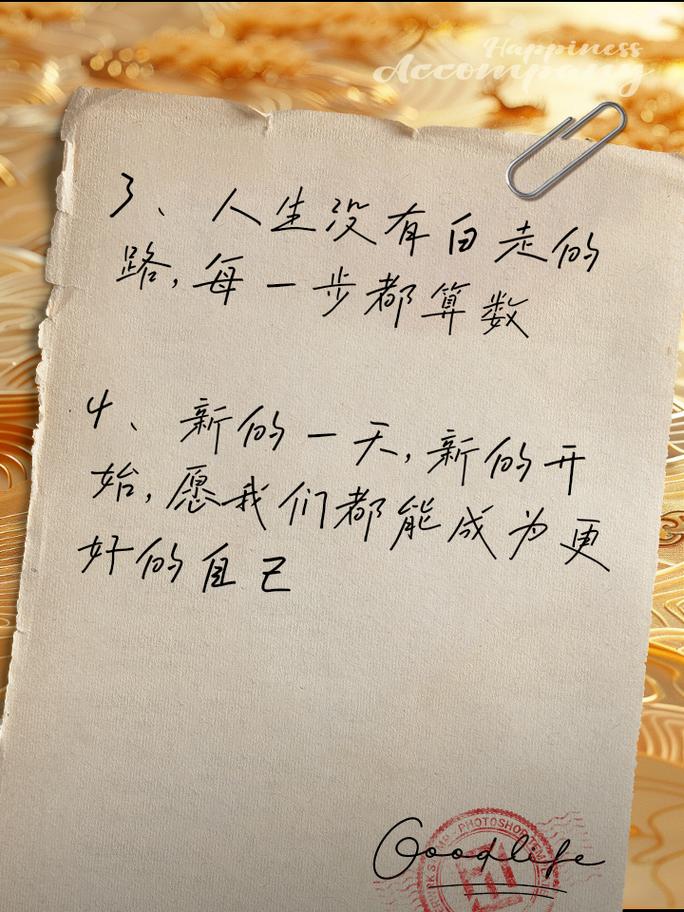 Happiness
Accompany
3、人生没有白走的
路,每一步都算数
4、新的一天,新的开
始,愿我们都能成为更
好的自己
PHOTOSHOP
Goodlife